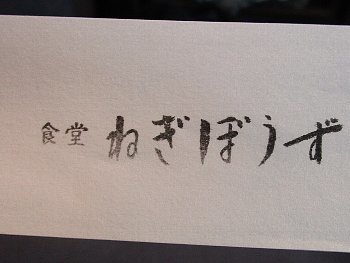 食堂 ねぎぼうず